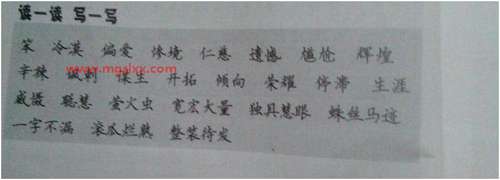 读一读 写一写
笨 冷漠 偏爱 惨境 仁慈 遗憾 尴尬 辉煌
www.mgalxx.com
辛辣 谋生 开拓 倾向 荣耀 停滞 生涯
威慑 聪慧 萤火虫 宽宏大量 独具慧眼 蛛丝马迹
一字不漏 滚瓜烂熟 整装待发